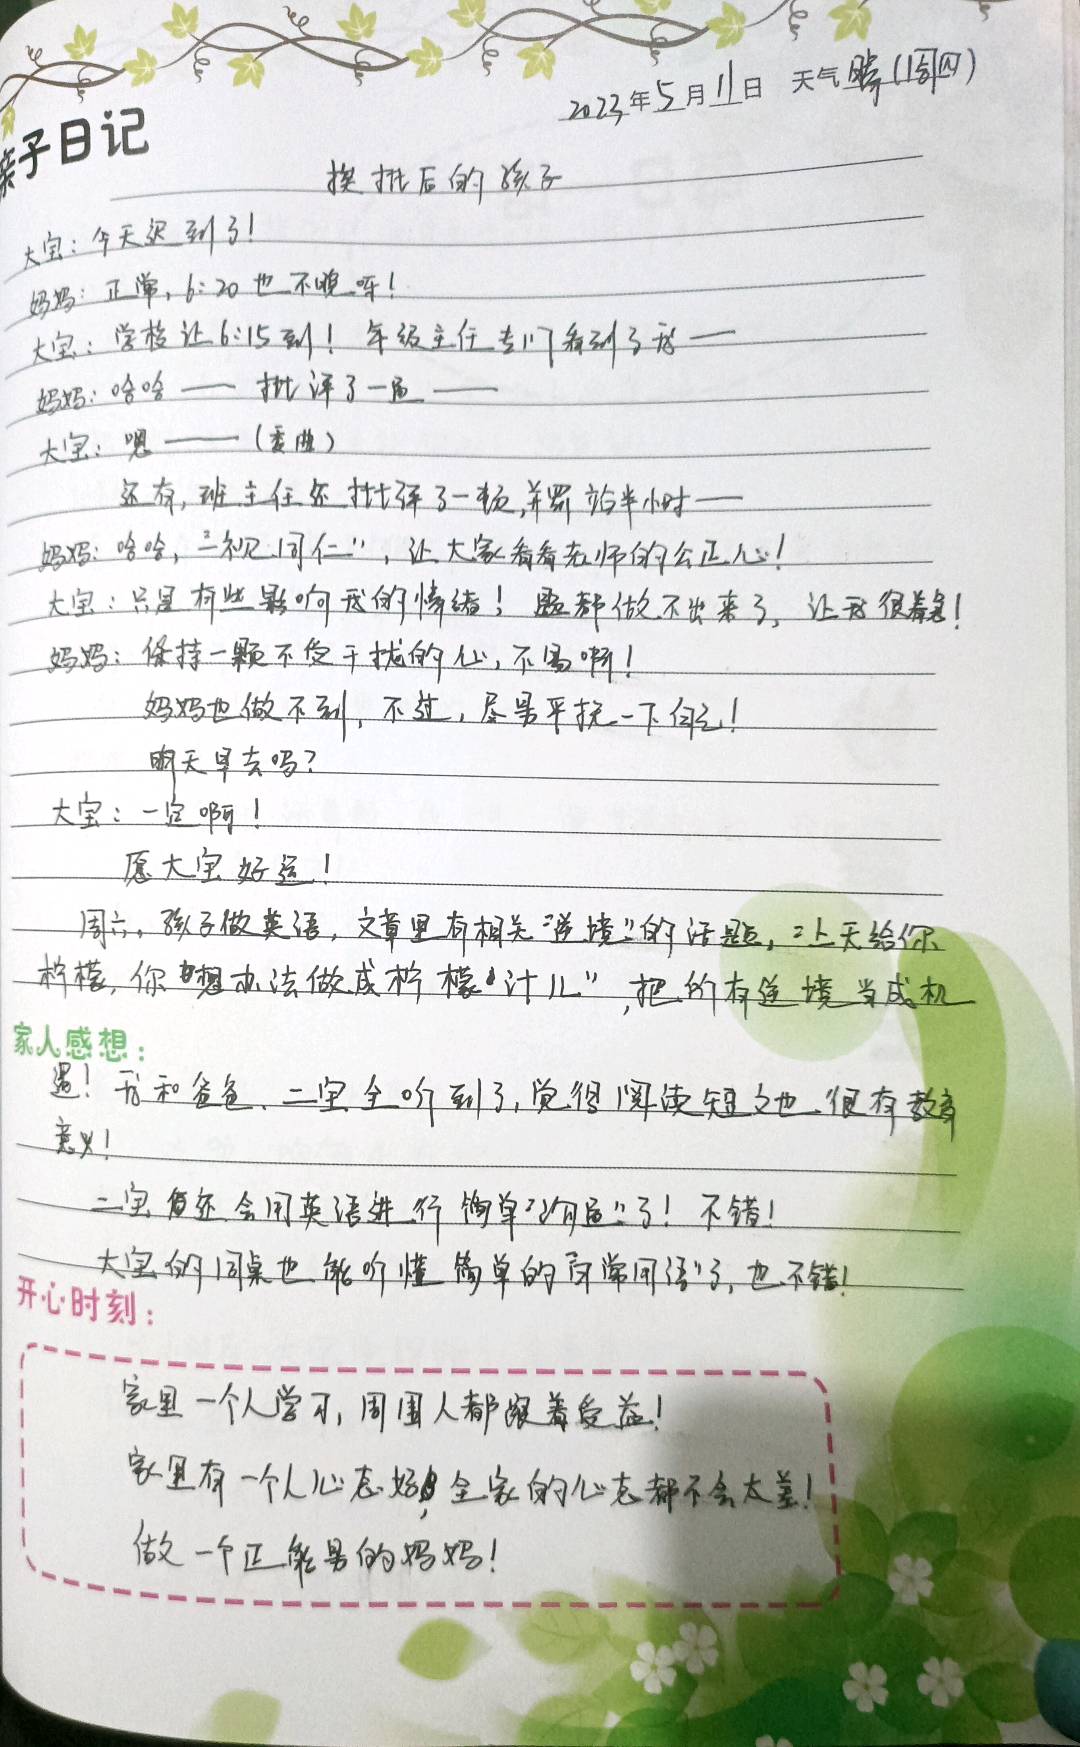 2023年5月11日 天气晴(周四)
亲子日记
挨批后的孩子
大宝：今天迟到了！
妈妈：正常，6:20也不晚呀！
大宝：学校让6:15到！年级主任专门看到了我——
妈妈：哈哈——批评了一通——
大宝：嗯——（委曲）
还有，班主任还批评了一顿，并罚站半小时——
妈妈：哈哈，“一视同仁”，让大家看看老师的公正心！
大宝：只是有些影响我的情绪！题都做不出来了，让我很着急！
妈妈：保持一颗不受干扰的心，不易啊！
妈妈也做不到，不过，尽量平抚一下自己！
明天早去吗？
大宝：一定啊！
愿大宝好运！
周六，孩子做英语，文章里有相关“逆境”的话题，“上天给你
柠檬，你想办法做成柠檬汁儿”，把所有逆境当成机
家人感想：
遇！我和爸爸、二宝全听到了，觉得阅读短文也很有教育
意义！
二宝还会用英语进行简单“沟通”了！不错！
大宝的同桌也能听懂简单的“日常用语”了，也不错！
开心时刻：
家里一个人学习，周围人都跟着受益！
家里有一个人心态好，全家的心态都不会太差！
做一个正能量的妈妈！